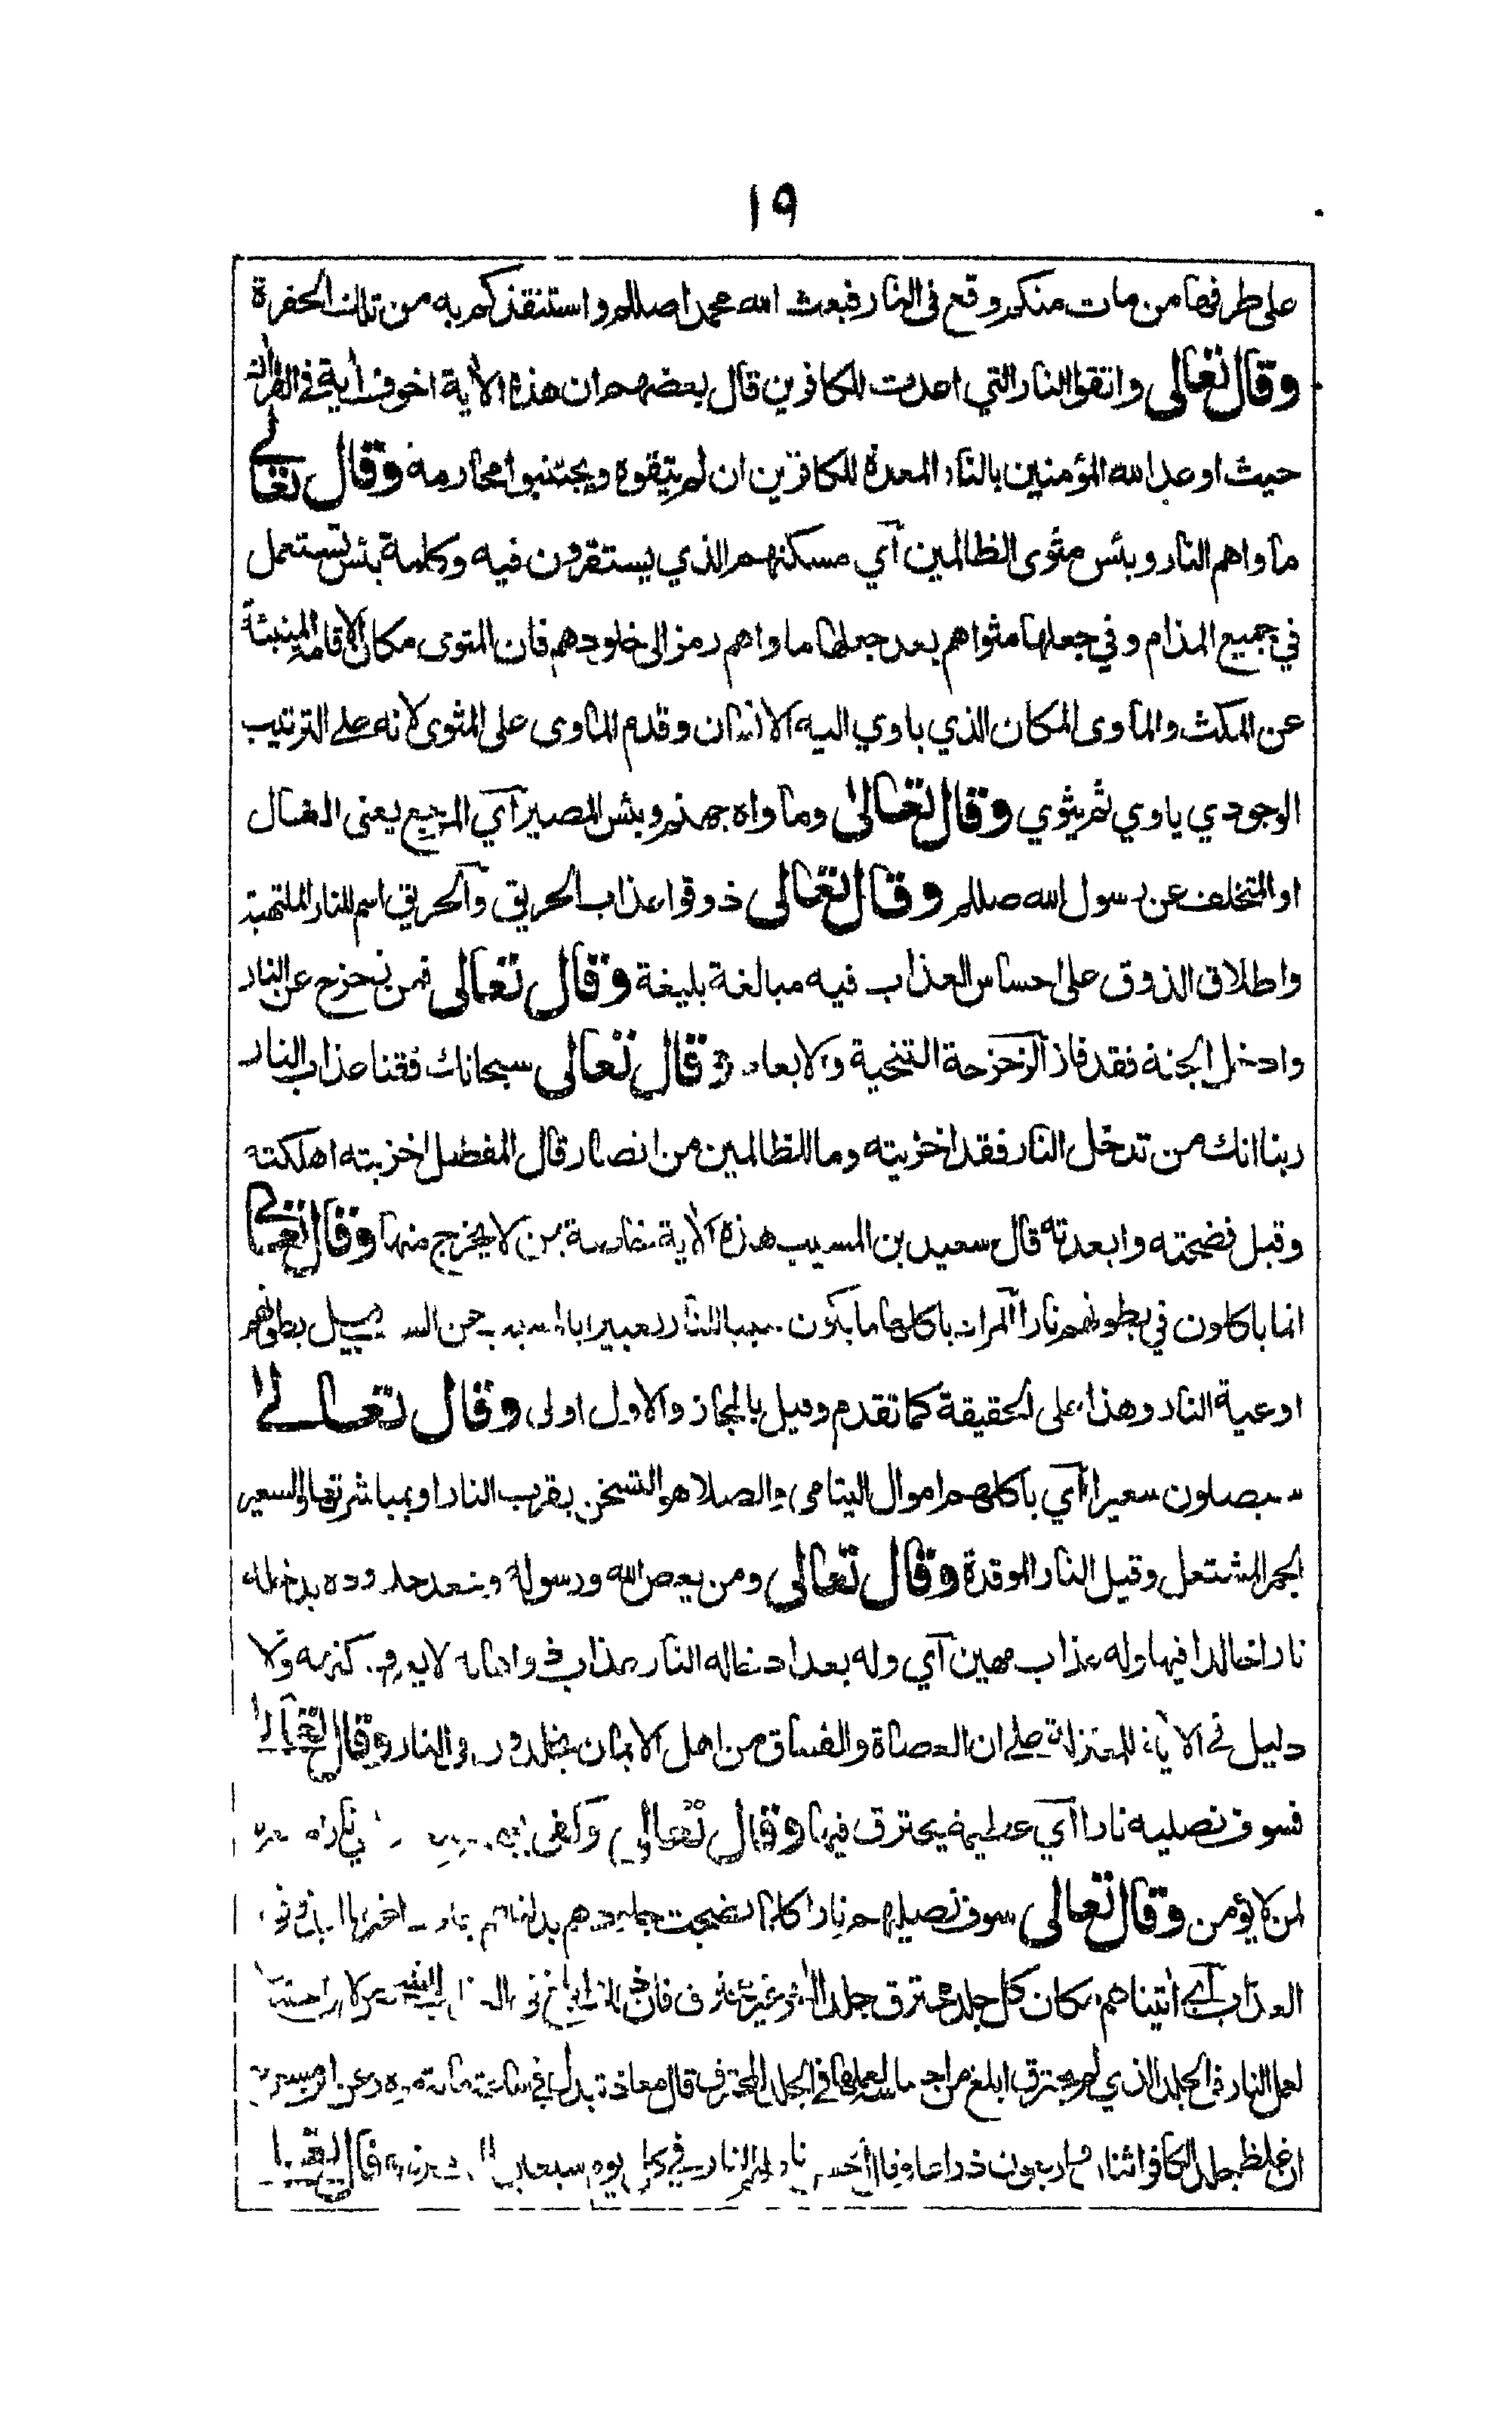 ١٩
على طرفها من مات منكم وقع فى النار فبعث الله محمدا صللم واستنقذكم به من تلك الحفرة
وقال تعالى واتقوا النار التي اعدت للكافرين قال بعضهم ان هذه الأية اخوف أية فى القرآن
حيث اوعد الله المؤمنين بالنار المعدة للكافرين ان لم يتقوه ويجتنبوا محارمه وقال تعالى
ماواهم النار وبئس مثوى الظالمين آي مسكنهم الذي يستقرون فيه وكلمة بئس تستعمل
في جميع المذام وفي جعلها مثواهم بعد جعلها ماواهم رمز الى خلودهم فان المثوى مكان الاقامة المنبئة
عن المكث والمأوى المكان الذي ياوي اليه الانسان وقدم المأوى على المثوى لانه على الترتيب
الوجودي ياوي ثم يثوي وقال تعالى وماواه جهنم وبئس المصير آي المرجع يعنى الغال
او المتخلف عن رسول الله صللم وقال تعالى ذوقوا عذاب الحريق والحريق اسم للنار الملتهبة
واطلاق الذوق على احساس العذاب فيه مبالغة بليغة وقال تعالى فمن زحزح عن النار
وادخل الجنة فقد فاز الزحزحة التنحية والابعاد وقال تعالى سبحانك فقنا عذاب النار
ربنا انك من تدخل النار فقد اخزيته وما للظالمين من انصار قال المفضل اخزيته اهلكته
وقيل فضحته وابعدته قال سعيد بن المسيب هذه الأية خاصة بمن لا يخرج منها وقال تعالى
انما ياكلون في بطونهم نارا المراد باكلها ما يكون سببا للنار تعبيرا بالمسبب عن السبب بطونهم
اوعية النار وهذا على الحقيقة كما تقدم وقيل بالمجاز والاول اولى وقال تعالى
سيصلون سعيرا آي باكلهم اموال اليتامى والصلا هو التسخن بقرب النار او بمباشرتها والسعير
الجمر المشتعل وقيل النار الموقدة وقال تعالى ومن يعص الله ورسوله ويتعد حدوده يدخله
نارا خالدا فيها وله عذاب مهين آي وله بعد ادخاله النار عذاب ذو اهانة لا يعرف كنهه ولا
دليل فى الأية للمعتزلة على ان العصاة والفساق من اهل الايمان يخلدون فى النار وقال تعالى
فسوف نصليه نارا آي عظيمة يحترق فيها وقال تعالى وكفى بجهنم
لمن لا يؤمن وقال تعالى سوف نصليهم نارا كلما نضجت جلودهم بدلناهم جلودا غيرها ليذوقوا
العذاب آي أتيناهم مكان كل جلد محترق جلدا غير محترق فان ذلك ابلغ فى
لعمل النار فى الجلد الذي لم يحترق ابلغ من عملها فى الجلد المحترق قال معاذ تبدل في ساعة مائة مرة وعن ابن مسعود
ان غلظ جلد الكافر اثنان واربعون ذراعا في كل يوم سبعين وقال تعالى